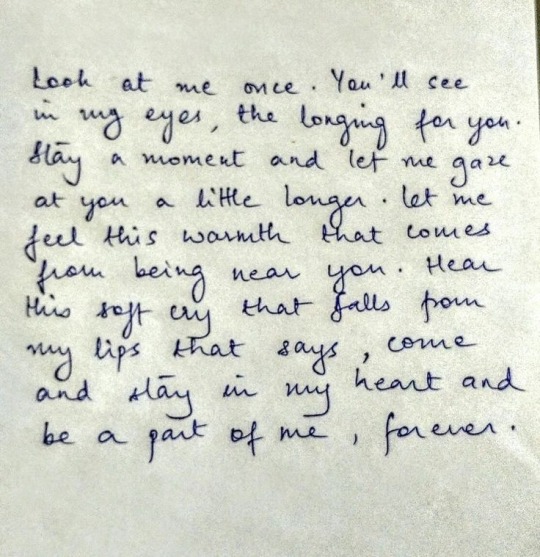 Look at me once. You'll see
in my eyes, the longing for you.
Stay a moment and let me gaze
at you a little longer. Let me
feel this warmth that comes
from being near you. Hear
this soft cry that falls from
my lips that says, come
and stay in my heart and
be a part of me, forever.